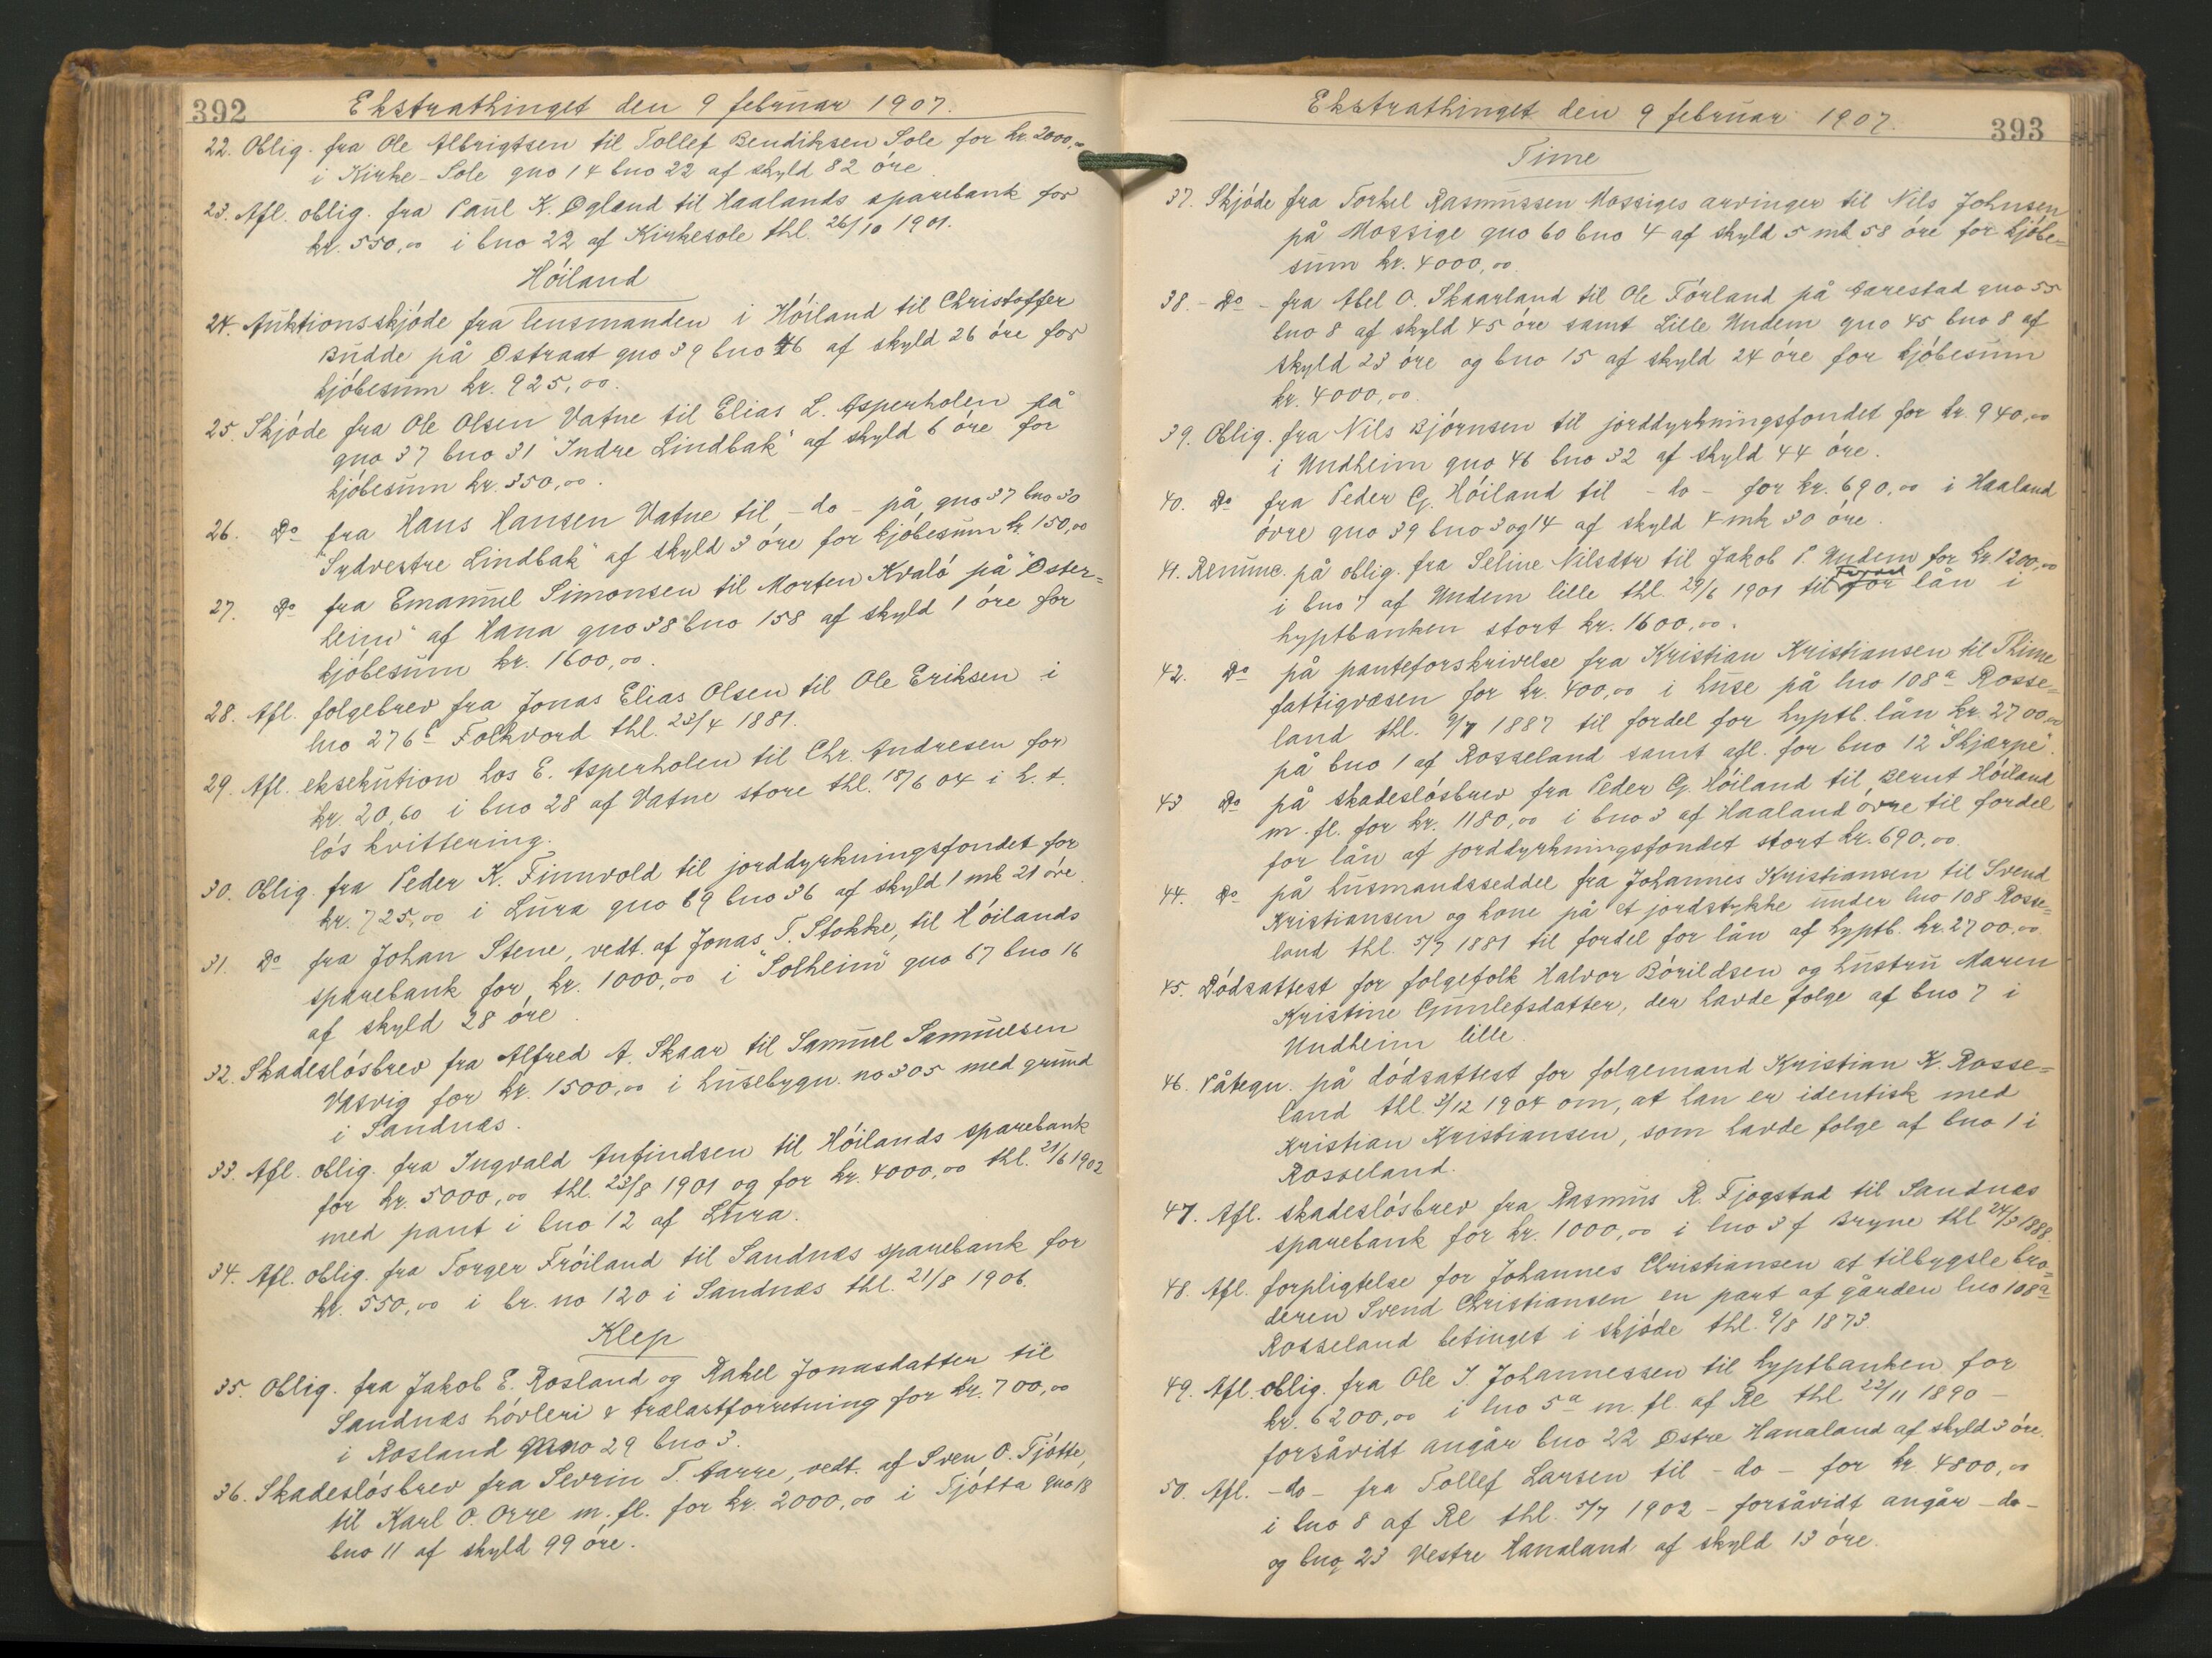 392
Ekstrathinget den 9 februar 1907.
22. Oblig. fra Ole Albrigtsen til Tollef Bendiksen Sole for kr. 2000,00
i Kirke-Sole gno 14 bno 22 af skyld 82 øre
23. Afl. oblig. fra Paul K. Øgland til Haalands sparebank for
kr. 550,00 i bno 22 af Kirkesole thl. 26/10 1901.
Høiland
24. Auktionsskjøde fra lensmanden i Høiland til Christoffer
Budde på Østraat gno 39 bno 46 af skyld 26 øre for
kjøbesum kr. 925,00.
25. Skjøde fra Ole Olsen Vatne til Elias L. Asperholen på
gno 37 bno 31 "Indre Lindbak" af skyld 6 øre for
kjøbesum kr. 350,00.
26. Do fra Hans Hansen Vatne til - do - på gno 37 bno 30
"Sydvestre Lindbak" af skyld 3 øre for kjøbesum kr. 150,00
27. Do fra Emanuel Simonsen til Morten Kvalø på "Øster=
heim" af Hana gno 38 bno 158 af skyld 1 øre for
kjøbesum kr. 1600,00.
28. Afl. folgebrev fra Jonas Elias Olsen til Ole Eriksen i
lno 276c Folkvord thl. 23/4 1881.
29. Afl. eksekution hos E. Asperholen til Chr. Andresen for
kr. 20,60 i bno 28 af Vatne store thl. 18/6 04 i h. t.
løs kvittering.
30. Oblig. fra Peder K. Finnvold til jorddyrkningsfondet for
kr. 725,00 i Lura gno 69 bno 36 af skyld 1 mk 21 øre.
31. Do fra Johan Stene, vedt. af Jonas T. Stokke, til Høilands
sparebank for kr. 1000,00 i "Solheim" gno 67 bno 16
af skyld 28 øre.
32. Skadesløsbrev fra Alfred A. Skaar til Samuel Samuelsen
Vasvig for kr. 1500,00 i husebygn. no 305 med grund
i Sandnæs.
33. Afl. oblig. fra Ingvald Anfindsen til Høilands sparebank
for kr. 5000,00 thl. 23/8 1901 og for kr. 4000,00 thl. 21/6 1902
med pant i bno 12 af Lura.
34. Afl. oblig. fra Torger Frøiland til Sandnæs sparebank for
kr. 550,00 i br. no 120 i Sandnæs thl. 21/8 1906.
Klep
35. Oblig. fra Jakob E. Rosland og Rakel Jonasdatter til
Sandnæs høvleri & trælastforretning for kr. 700,00
i Rosland gno 29 bno 3.
36. Skadesløsbrev fra Sevrin T. Aarre, vedt. af Sven O. Tjøtte,
til Karl O. Orre m. fl. for kr. 2000,00 i Tjøtta gno 18
bno 11 af skyld 99 øre.
393
Ekstrathinget den 9 februar 1907.
Time
37. Skjøde fra Torkel Rasmussen Mossiges arvinger til Nils Johnsen
på Mossige gno 60 bno 4 af skyld 5 mk 58 øre for kjøbe=
sum kr. 4000,00.
38. - Do - fra Abel O. Skaarland til Ole Førland på Aarestad gno 55
bno 8 af skyld 45 øre samt Lille Undem gno 45 bno 8 af
skyld 23 øre og bno 15 af skyld 24 øre for kjøbesum
kr. 4000,00.
39. Oblig. fra Nils Bjørnsen til jorddyrkningsfondet for kr. 940,00
i Undheim gno 46 bno 32 af skyld 44 øre.
40. Do fra Peder G. Høiland til - do - for kr. 690,00 i Haaland
øvre gno 39 bno 3 og 14 af skyld 4 mk 30 øre.
41. Renunc. på oblig. fra Seline Nilsdtr til Jakob P. Undem for kr. 1200,00
i bno 7 af Undem lille thl. 29/6 1901 til for lån i
hyptbanken stort kr. 1600,00.
42. Do på panteforskrivelse fra Kristian Kristiansen til Thime
fattigvæsen for kr. 400,00 i huse på lno 108a Rosse=
land thl. 9/7 1887 til fordel for hyptb. lån kr. 2700,00
på bno 1 af Rosseland samt afl. for bno 12 "Skjærpe".
43 Do på skadesløsbrev fra Peder G. Høiland til Bernt Høiland
m. fl. for kr. 1180,00 i bno 3 af Haaland øvre til fordel
for lån af jorddyrkningsfondet stort kr. 690,00.
44. Do på husmandsseddel fra Johannes Kristiansen til Svend
Kristiansen og kone på et jordstykke under lno 108 Rosse=
land thl. 5/7 1881 til fordel for lån af hyptb. kr. 2700,00.
45. Dødsattest for folgefolk Halvor Børildsen og hustru Maren
Kristine Gunlefsdatter, der havde folge af bno 7 i
Undheim lille.
46. Påtegn. på dødsattest for folgemand Kristian K. Rosse=
land thl. 3/12 1904 om, at han er identisk med
Kristian Kristiansen, som havde folge af bno 1 i
Rosseland.
47. Afl. skadesløsbrev fra Rasmus R. Fjogstad til Sandnæs
sparebank for kr. 1000,00 i lno 3 f Bryne thl 24/3 1888.
48. Afl. forpligtelse for Johannes Christiansen at tilbygsle bro=
deren Svend Christiansen en part af gården lno 108a
Rosseland betinget i skjøde thl. 9/8 1873.
49. Afl. oblig. fra Ole I. Johannessen til hyptbanken for
kr. 6200,00 i lno 5a m. fl. af Re thl. 22/11 1890 -
forsåvidt angår bno 22 Østre Hanaland af skyld 3 øre.
50. Afl. - do - fra Tollef Larsen til - do - for kr. 4800,00
i bno 8 af Re thl. 5/7 1902 - forsåvidt angår - do -
og bno 23 Vestre Hanaland af skyld 13 øre.